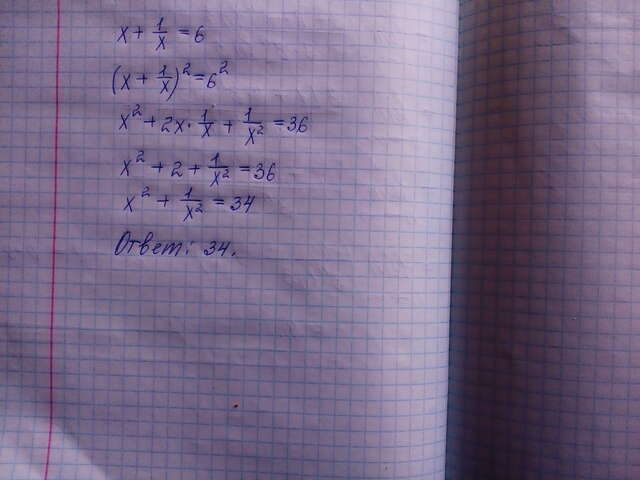 x + 1/x = 6
(x + 1/x)² = 6²
x² + 2x · 1/x + 1/x² = 36
x² + 2 + 1/x² = 36
x² + 1/x² = 34
Ответ: 34.